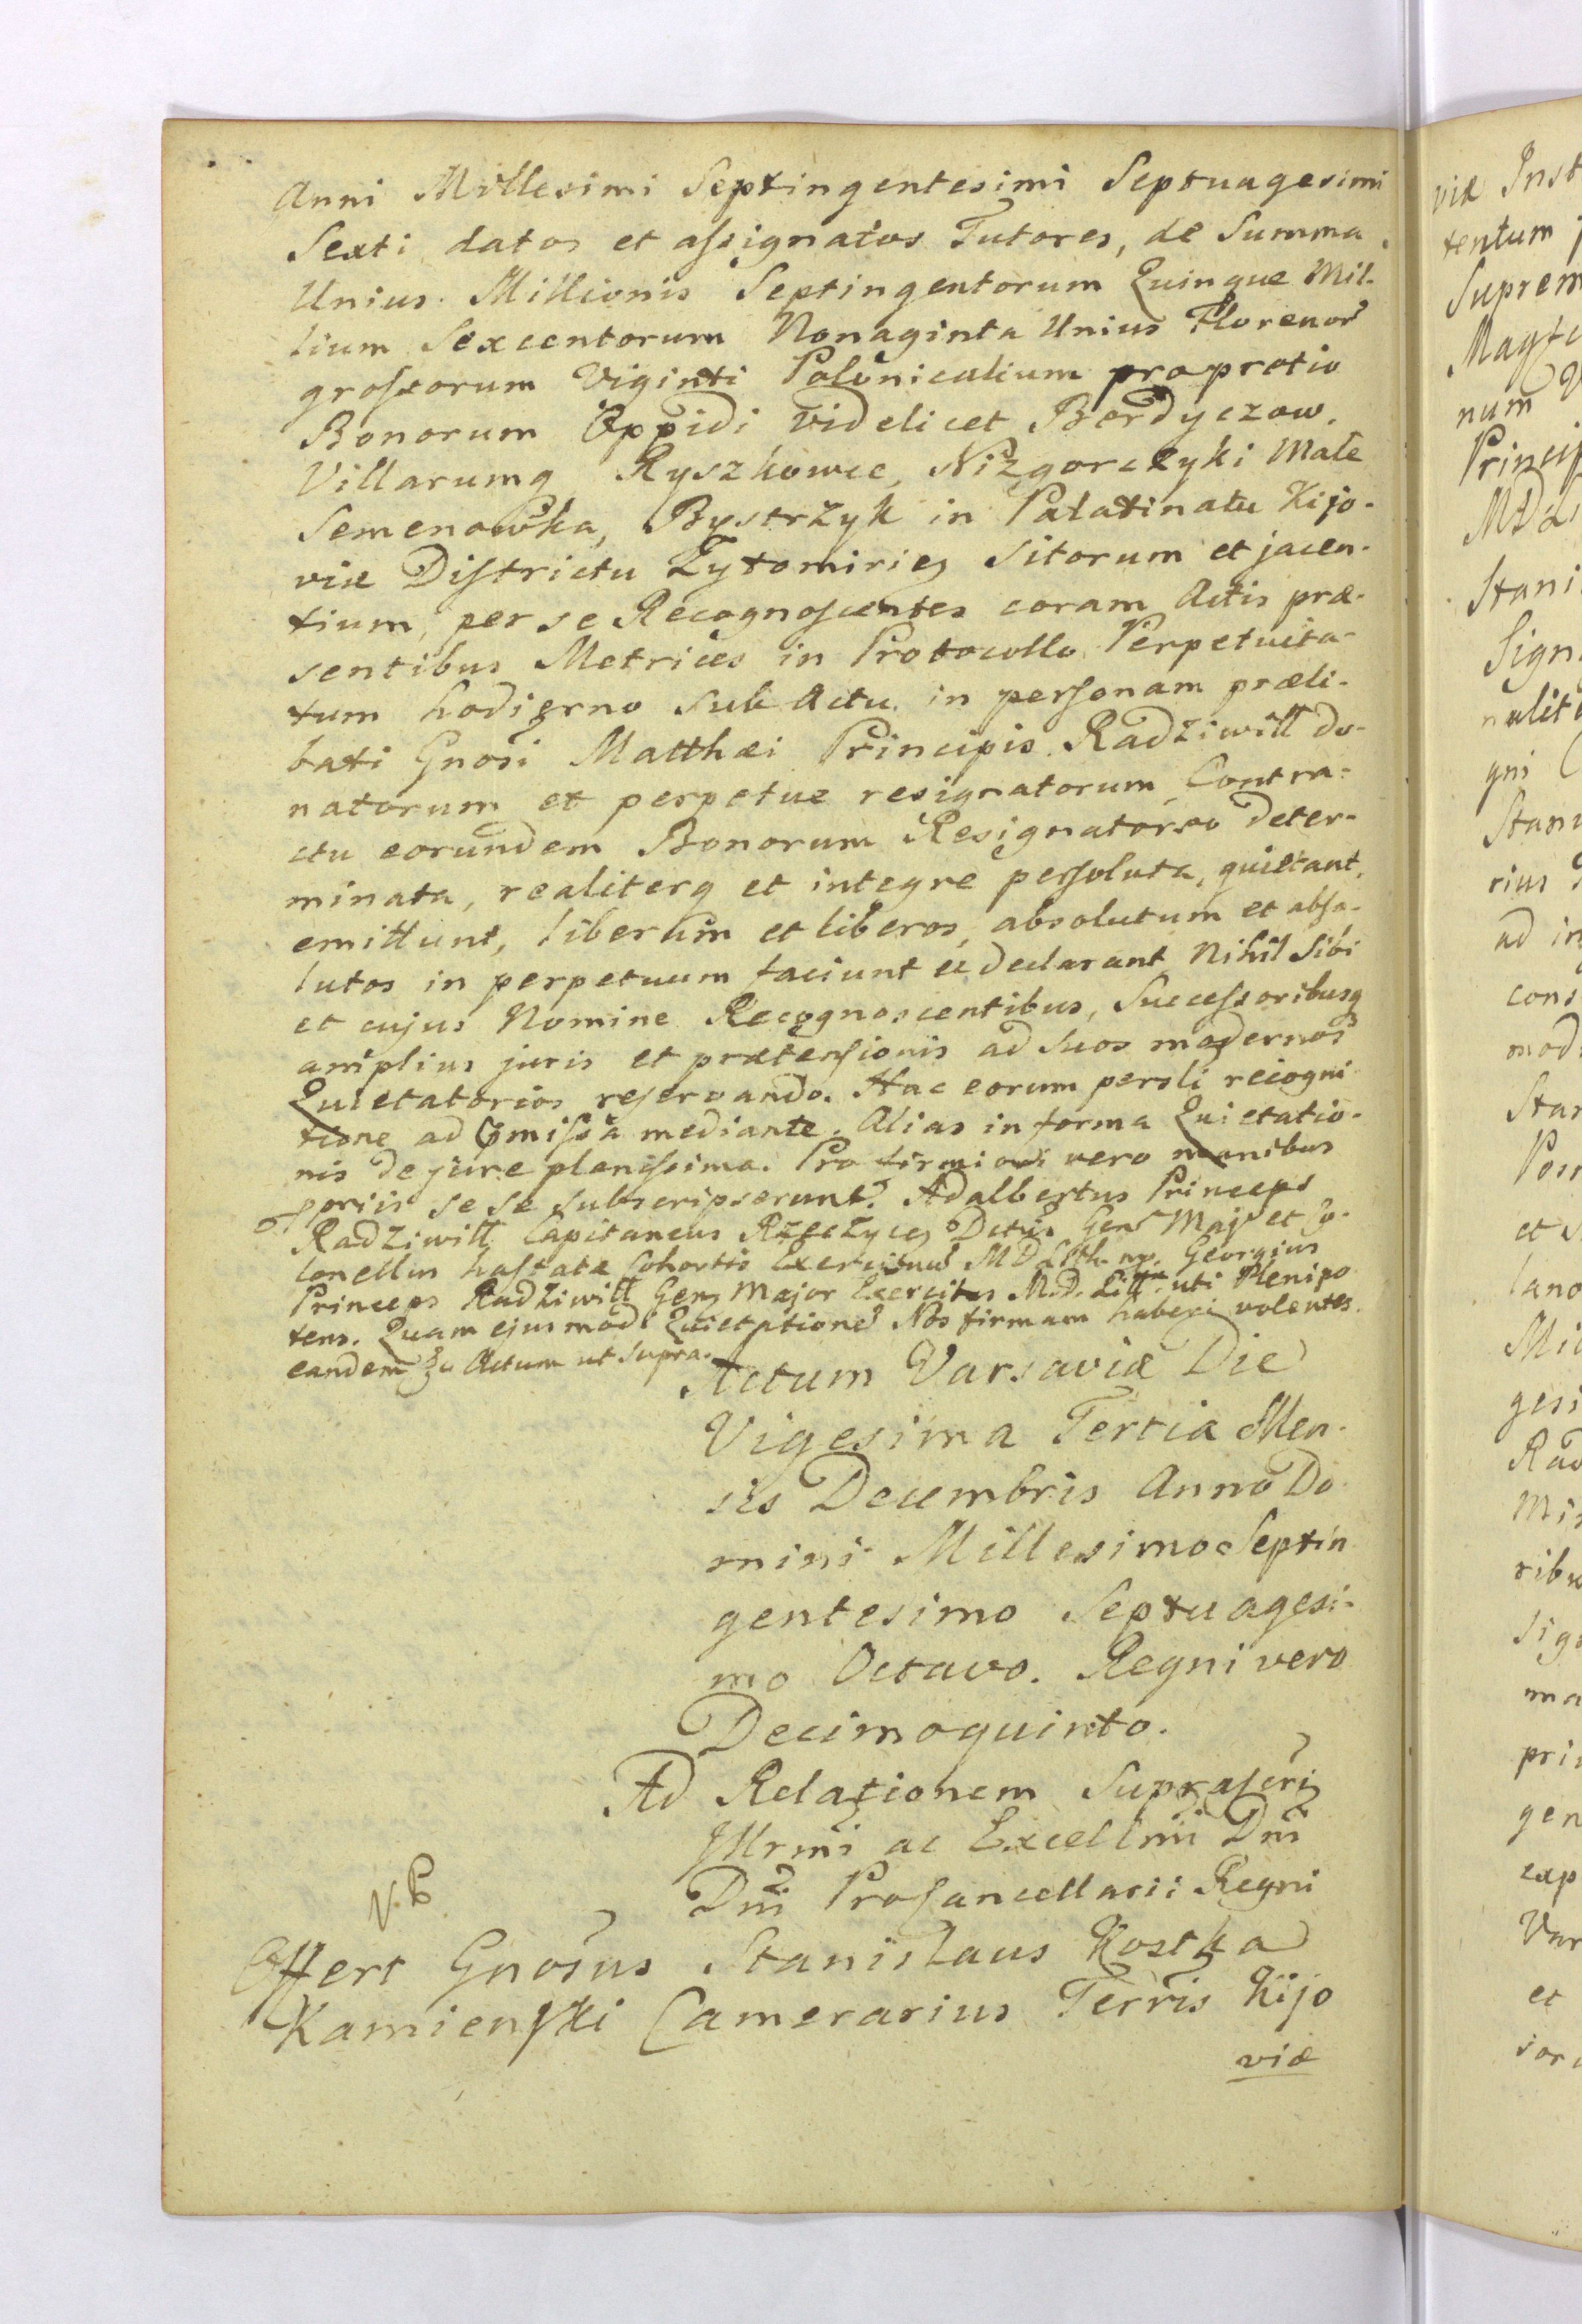 Anni Millesimi Septingentesimi Septuagesimi
Sexti datos et assignatos Tutores, de Summa
Unius Millionis Septingentorum Quinque Mil-
lium Sexcentorum Nonaginta Unius Floreno٢
grossorum Viginti Polonicalium pro pretio
Bonorum Oppidi videlicet Berdyczow,
Villarumq Ryszkowce, Niżgorczyki Małe
Semenowka, Bystrzyk in Palatinatu Kijo-
viæ Districtu Zytomirieȝ Sitorum et jacen-
tium, per se Recognoscentes coram Actis præ-
sentibus Metrices in Protocollo Perpetuita-
tum hodierno sub Actu in personam præli-
bati Gnosi Matthæi Principis Radziwiłł do-
natorum et perpetue resignatorum, Contra-
ctu eorundem Bonorum Resignatorio deter-
minata, realiterq et integre persoluta, quietant,
emittunt, liberum et liberos, absolutum et abso-
lutos in perpetuum faciunt et declarant Nihil Sibi
et cujus Nomine Recognoscentibus, Successoribusq
amplius juris et prætensionis ad suos modernos
Quietatorios reservando. Hac eorum persli recogni-
tione ad præmissa mediante. Alias in forma Quietatio-
nis de jure plenissima. Pro firmiori vero manibus
ppriis sese subscripserunt. Adalbertus Princeps
Radziwiłł Capitaneus Rzeczyceȝ Gen Maj et Co-
lonellus hastatæ Cohortis Exercituus MDLith. mp. Georgius
Princeps Radziwiłł Genȝ Major Exercitus M.D. Litt. uti Plenipo
tens. Quam ejusmodi Quietatione Nos firmam haberi volentes
eandem Actum ut supra.
Actum Varsaviæ Die
Vigesima Tertia Men-
sis Decembris Anno Do
mini Millesimo Septin
gentesimo Septuagesi-
mo Octavo. Regni vero
Decimoquinto.
Ad Relationem Suprascriȝ
Illrmi ac Excellmi Dni
Dni ProCancellarii Regni
Offert Gnosus Stanislaus Kostka
Kamienski Camerarius Terris Kijo
viæ